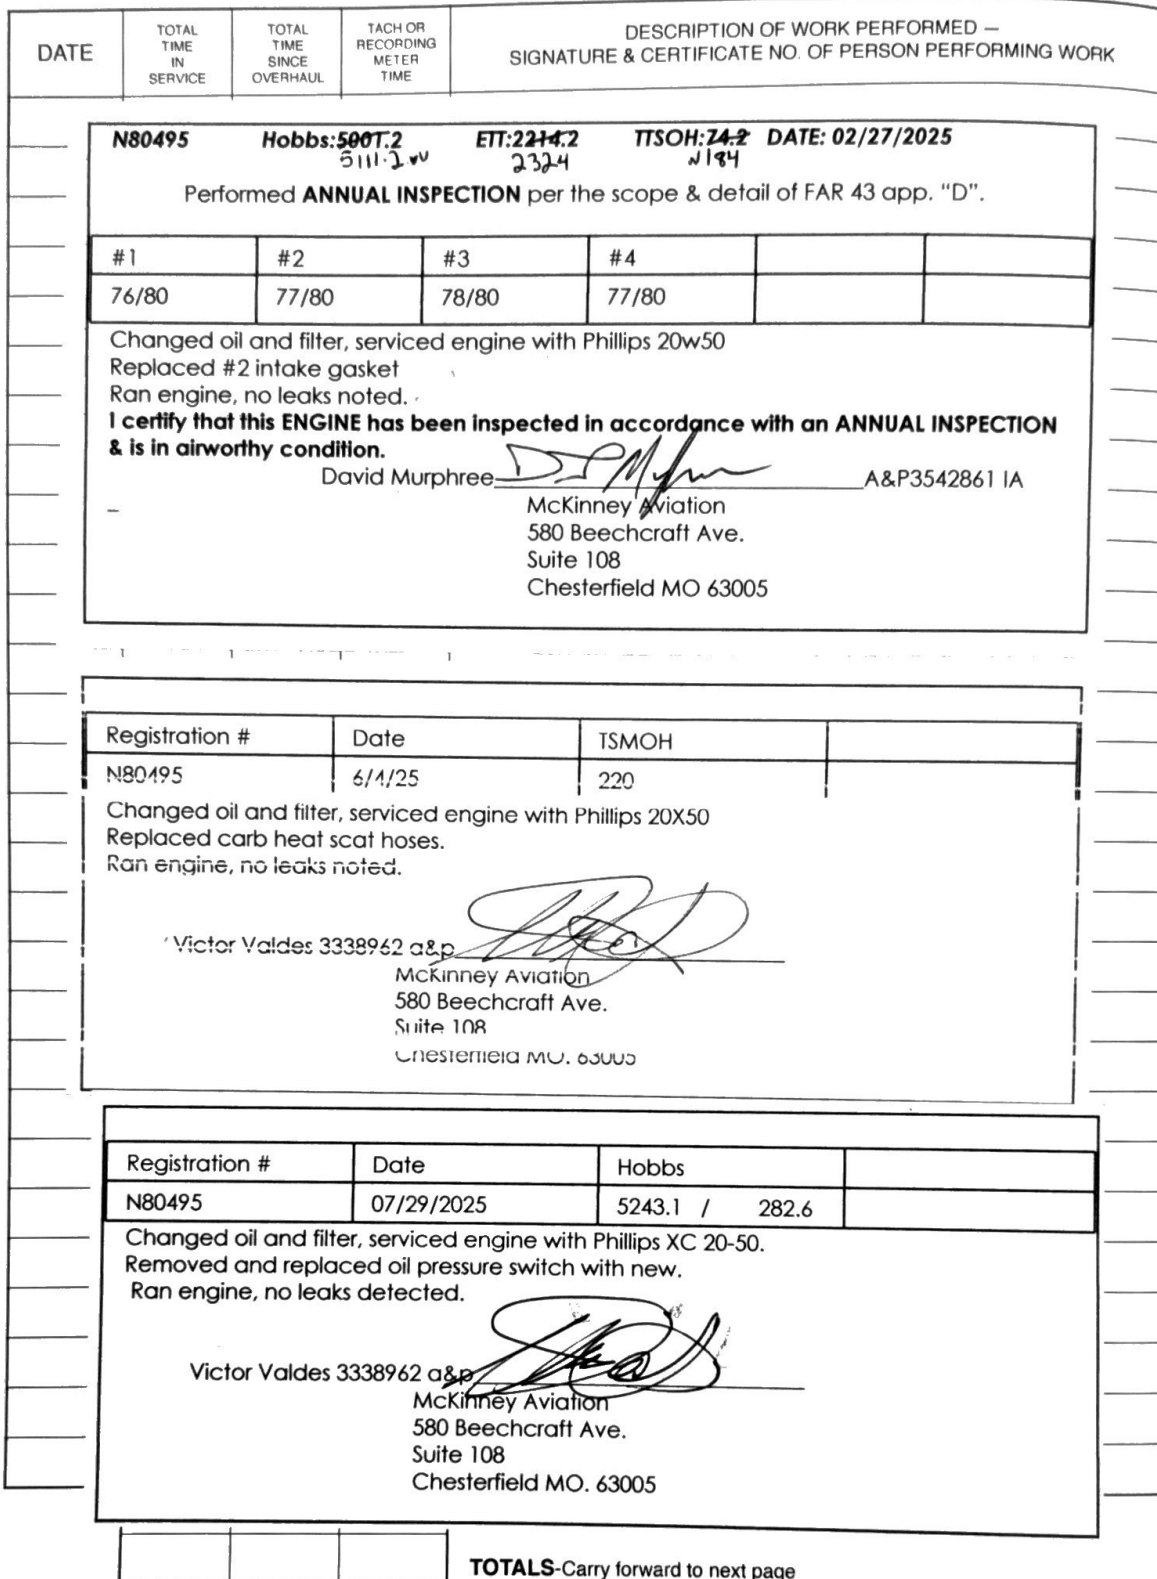 DATE
TOTAL TIME IN SERVICE
TOTAL TIME SINCE OVERHAUL
TACH OR RECORDING METER TIME
DESCRIPTION OF WORK PERFORMED –
SIGNATURE & CERTIFICATE NO. OF PERSON PERFORMING WORK
N80495 Hobbs: ETT: TTSOH:74.2 DATE: 02/27/2025
5111.2 2324 184
Performed ANNUAL INSPECTION per the scope & detail of FAR 43 app. “D”.
#1 #2 #3 #4
76/80 77/80 78/80 77/80
Changed oil and filter, serviced engine with Phillips 20w50
Replaced #2 intake gasket
Ran engine, no leaks noted.
I certify that this ENGINE has been inspected in accordance with an ANNUAL INSPECTION
& is in airworthy condition.
David Murphree A&P3542861 IA
McKinney Aviation
580 Beechcraft Ave.
Suite 108
Chesterfield MO 63005
Registration # Date TSMOH
N80495 6/4/25 220
Changed oil and filter, serviced engine with Phillips 20X50
Replaced carb heat scat hoses.
Ran engine, no leaks noted.
Victor Valdes 3338962 a&p
McKinney Aviation
580 Beechcraft Ave.
Suite 108
Chesterfield MO. 63005
Registration # Date Hobbs
N80495 07/29/2025 5243.1 / 282.6
Changed oil and filter, serviced engine with Phillips XC 20-50.
Removed and replaced oil pressure switch with new.
Ran engine, no leaks detected.
Victor Valdes 3338962 a&p
McKinney Aviation
580 Beechcraft Ave.
Suite 108
Chesterfield MO. 63005
TOTALS-Carry forward to next page